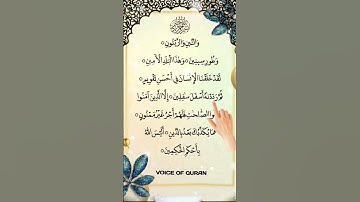 وَالتِّينِ وَالزَّيْتُونِ
وَطُورِ سِينِينَ وَهَٰذَا الْبَلَدِ الْأَمِينِ
لَقَدْ خَلَقْنَا الْإِنسَانَ فِي أَحْسَنِ تَقْوِيمٍ
ثُمَّ رَدَدْنَاهُ أَسْفَلَ سَافِلِينَ إِلَّا الَّذِينَ آمَنُوا
وَعَمِلُوا الصَّالِحَاتِ فَلَهُمْ أَجْرٌ غَيْرُ مَمْنُونٍ
فَمَا يُكَذِّبُكَ بَعْدُ بِالدِّينِ أَلَيْسَ اللَّهُ
بِأَحْكَمِ الْحَاكِمِينَ
VOICE OF QURAN